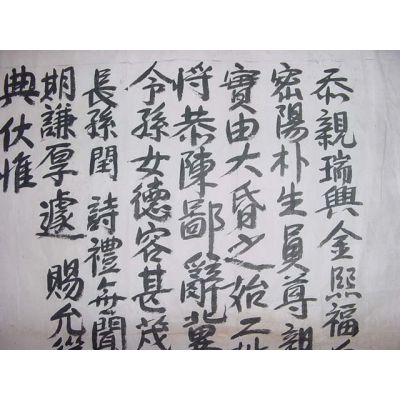 忝親瑞興金熙福
密陽朴生員尊親
寶由大昏之始
将恭陳鄙辭冀
令孫女德容甚茂
長孫閏 詩禮無聞
期謙厚遽 賜允
典伏惟